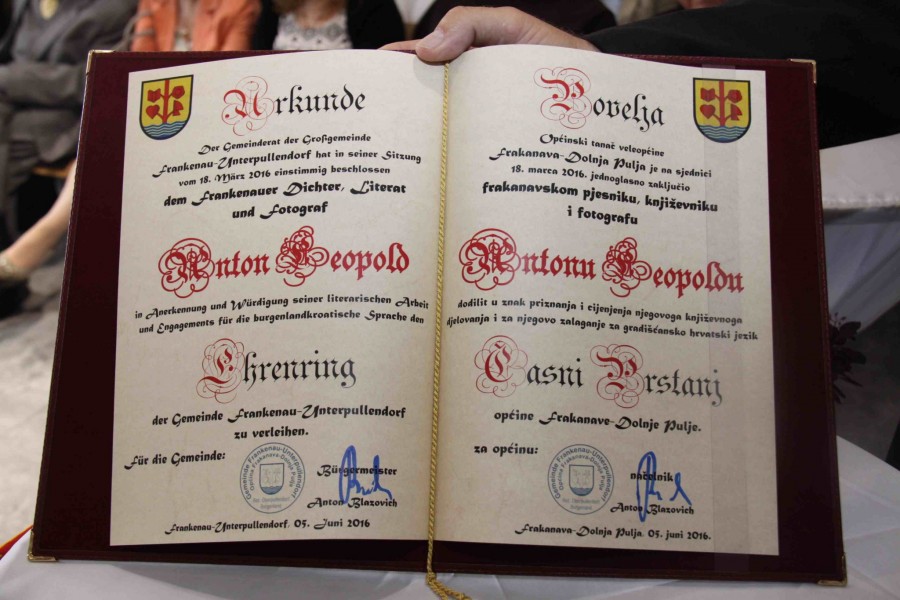 Urkunde
Der Gemeinderat der Großgemeinde
Frankenau-Unterpullendorf hat in seiner Sitzung
vom 18. März 2016 einstimmig beschlossen
dem Frankenauer Dichter, Literat
und Fotograf
Anton Leopold
in Anerkennung und Würdigung seiner literarischen Arbeit
und Engagements für die burgenlandkroatische Sprache den
Ehrenring
der Gemeinde Frankenau-Unterpullendorf
zu verleihen.
Für die Gemeinde:
Bürgermeister
Anton Blazovich
Frankenau-Unterpullendorf, 05. Juni 2016
Povelja
Općinski tanač veleopćine
Frakanava-Dolnja Pulja je na sjednici
18. marca 2016. jednoglasno zaključio
frakanavskom pjesniku, književniku
i fotografu
Antonu Leopoldu
dodilit u znak priznanja i cijenjenja njegovoga književnoga
djelovanja i za njegovo zalaganje za gradišćansko hrvatski jezik
Časni Prstanj
općine Frakanave-Dolnje Pulje.
za općinu:
načelnik
Anton Blazovich
Frakanava-Dolnja Pulja, 05. juni 2016.